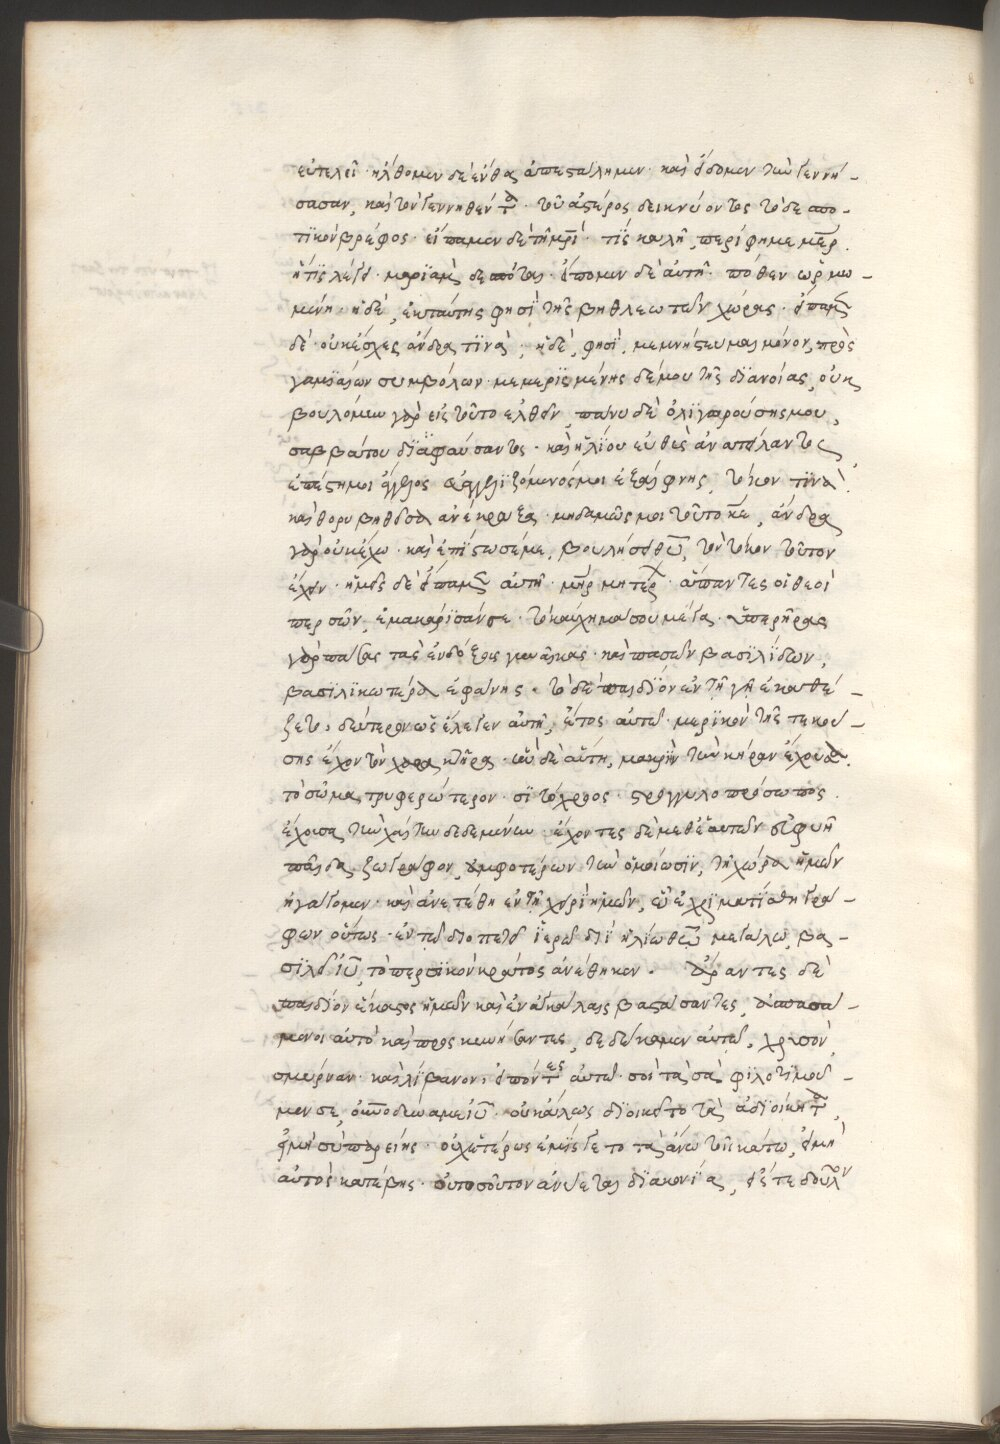 εὐτελεῖ· ἤλθομεν δὲ ἔνθα ἀπεστάλημεν· καὶ εἴδομεν τὴν γεννή-
σασαν, καὶ τὸν γεννηθέντα· τοῦ ἀστέρος δεικνύοντος τὸ δεσπο-
τικὸν βρέφος· εἴπαμεν δὲ τῇ μρί· τίς καλῇ περίφημε μερ
ἡ τίς λέγει· μαρϊὰμ δεσπόται· εἴπομεν δὲ αὐτῇ· πόθεν ὡρμω-
μένη· ἡ δὲ, ἐκ ταύτης φησὶ τῆς βηθλεωτῶν χώρας· εἴπαμεν
δὲ· οὐκ ἔσχες ἄνδρα τϊνὰ; ἡ δέ, φησί, μεμνήστευμαι μόνον, πρὸς
γαμϊαίων συμβόλων· μεμερϊσμένης δέ μου τῆς δϊανοίας, οὐκ
βουλόμην γὰρ εἰς τοῦτο ἐλθεῖν, πάνυ δὲ ὀλϊγωρούσης μου,
σαββάτου δϊαφαύσαντος· καὶ ἡλίου εὐθὲς ἀναπείλαντος
ἐπέστη μοι ἄγγελος εὐαγγελϊζόμενός μοι ἐξαίφνης, τόκον τϊνὰ·
καὶ θορυβηθεῖσα ἀνέκραξα· μηδαμῶς μοι τοῦτο κε, ἄνδρα
γὰρ οὐκ ἔχω· καὶ ἐπίστωσέ με, βουλήσει θυ, τὸν τόκον τοῦτον
ἔχειν· ἡμεῖς δὲ εἴπαμεν αὐτῇ· μηρ μητερ· ἅπαντες οἱ θεοὶ
περσῶν, ἐμακάρϊσάν σε· τὸ καύχημά σου μέγα· ὑπερῆρας
γὰρ πάσας τὰς ἐνδόξοις γυναῖκας· καὶ πασῶν βασϊλϊδων,
βασϊλϊκωτέρα ἐφάνης· τὸ δὲ παιδϊον ἐν τῇ γῇ ἐκαθέ-
ζετο, δεύτερον ὡς ἔλεγεν αὐτῇ, ἔτος αὐτοῦ· μερϊκὸν τῆς τεκού-
σης ἔχον τὸν χαρακτῆρα· ἦν δὲ αὕτη, μακρὴν τὴν κῆραν ἔχουσα.
τὸ σῶμα, τρυφερώτερον· σϊτόχροος· στρογγυλοπρόσωπος.
ἔχουσα τὴν χαίτην δεδεμένην· ἔχοντες δὲ μεθ᾽ ἑαυτῶν εὐφυῆ
παῖδα, ζωγράφον, ἀμφοτέρων τὴν ὁμοίωσϊν, τῇ χώρα ἡμῶν
ἠγάγομεν· καὶ ἀνετέθη ἐν τῇ χειρὶ ἡμῶν, ἐν ᾧ ἐχρϊματίσθη γρά-
φων οὕτως· ἐν τῷ διοπετεῖ ἱερῷ διῒ ἡλίω θεῶ μεγάλω, βα-
σϊλεῖ ιυ, τὸ περσϊκὸν κράτος ἀνέθηκεν· ἄραντες δὲ
παιδίον ἕκαστος ἡμῶν καὶ ἐν ἀγκάλαις βαστάσαντες, ἀσπασά-
μενοι αὐτὸ καὶ προσκυνήσαντες, δεδώκαμεν αὐτῷ, χρυσὸν,
σμύρναν· καὶ λϊβανον, εἰπόντες αὐτῷ· σοὶ τὰ σὰ φϊλοτϊμού-
μεν σε, οὐνοδύναμε ιυ· οὐκ ἄλλως δϊοικεῖτο τὰ ἀδϊοίκητα,
εἰ μὴ σὺ παρείης· οὐχ ἑτέρως ἐμϊσγετο τὰ ἄνω τοῖς κάτω, εἰ μὴ
αὐτὸς κατέβης· οὐ τοσοῦτον ἀνύεται δϊακονία, εἴ τε δοῦλον